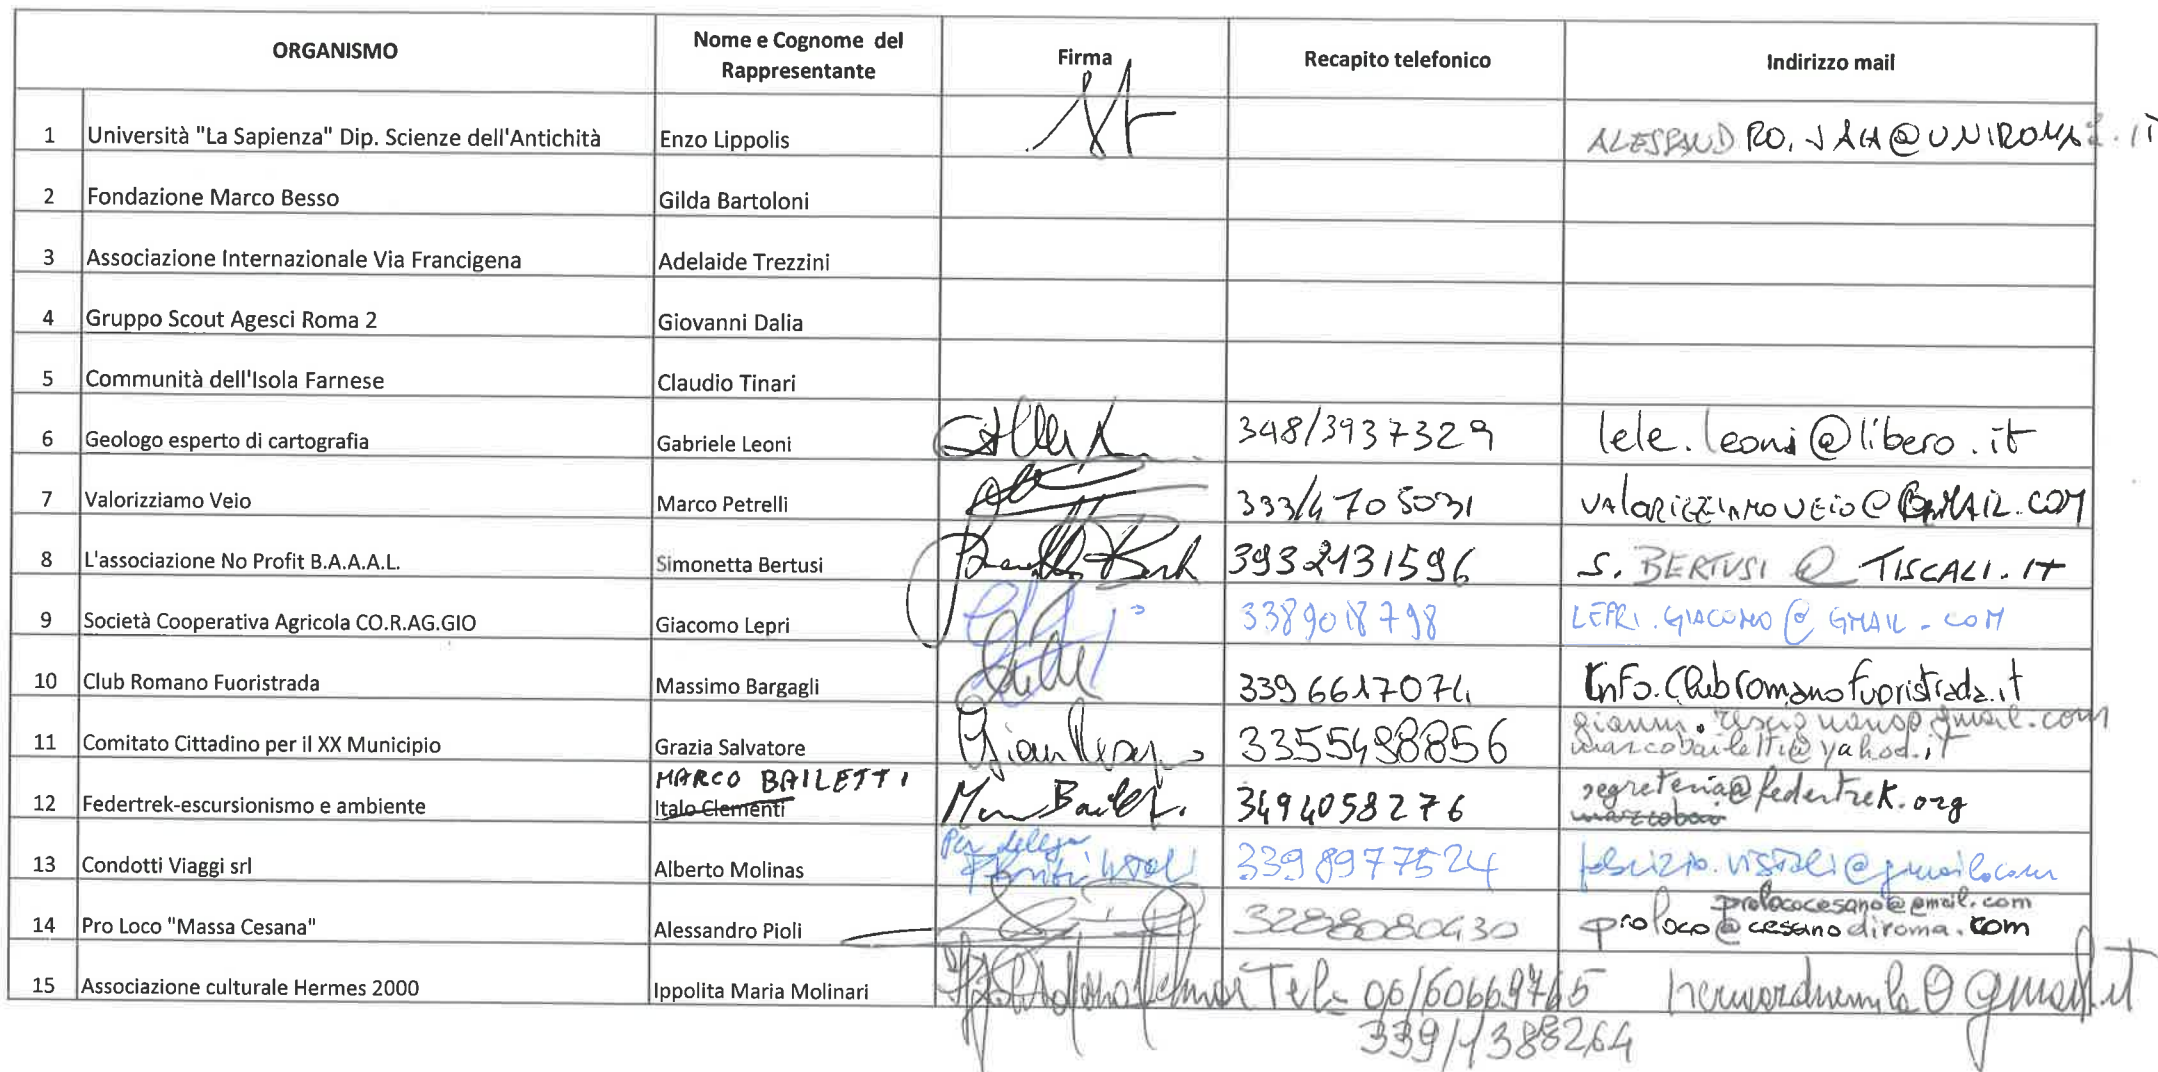 ORGANISMO Nome e Cognome del Rappresentante Firma Recapito telefonico Indirizzo mail
1 Università "La Sapienza" Dip. Scienze dell'Antichità Enzo Lippolis
2 Fondazione Marco Besso Gilda Bartoloni
3 Associazione Internazionale Via Francigena Adelaide Trezzini
4 Gruppo Scout Agesci Roma 2 Giovanni Dalia
5 Communità dell'Isola Farnese Claudio Tinari
6 Geologo esperto di cartografia Gabriele Leoni 348/3937329 lele.leoni@libero.it
7 Valorizziamo Veio Marco Petrelli 333/4705031 VALORIZZIAMOVEIO@GMAIL.COM
8 L'associazione No Profit B.A.A.A.L. Simonetta Bertusi 3932131596 S.BERTUSI@TISCALI.IT
9 Società Cooperativa Agricola CO.R.AG.GIO Giacomo Lepri 3389018798 LEPRI.GIACOMO@GMAIL.COM
10 Club Romano Fuoristrada Massimo Bargagli 3396617074 Info.Clubromanofuoristrada.it
11 Comitato Cittadino per il XX Municipio Grazia Salvatore 3355498856 gianni.rescignano@gmail.com
marcobailetti@yahoo.it
MARCO BAILETTI
12 Federtrek-escursionismo e ambiente Italo Clementi 3494058276 segreteria@federtrek.org
Per delega
13 Condotti Viaggi srl Alberto Molinas 3398977524 fabrizio.vistoli@gmail.com
prolococesano@gmail.com
14 Pro Loco "Massa Cesana" Alessandro Pioli 3288080430 proloco@cesanodiroma.com
15 Associazione culturale Hermes 2000 Ippolita Maria Molinari Tel.
339/1388264